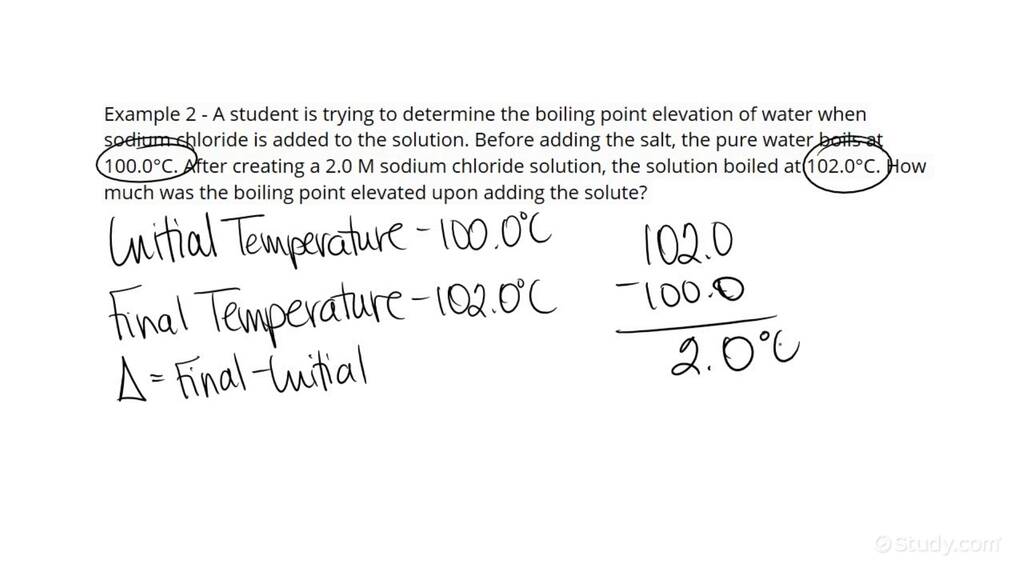 Example 2 - A student is trying to determine the boiling point elevation of water when
sodium chloride is added to the solution. Before adding the salt, the pure water boils at
100.0°C. After creating a 2.0 M sodium chloride solution, the solution boiled at 102.0°C. How
much was the boiling point elevated upon adding the solute?
Initial Temperature - 100.0°C
Final Temperature - 102.0°C
Δ = Final - Initial
102.0
-100.0
2.0°C
Study.com